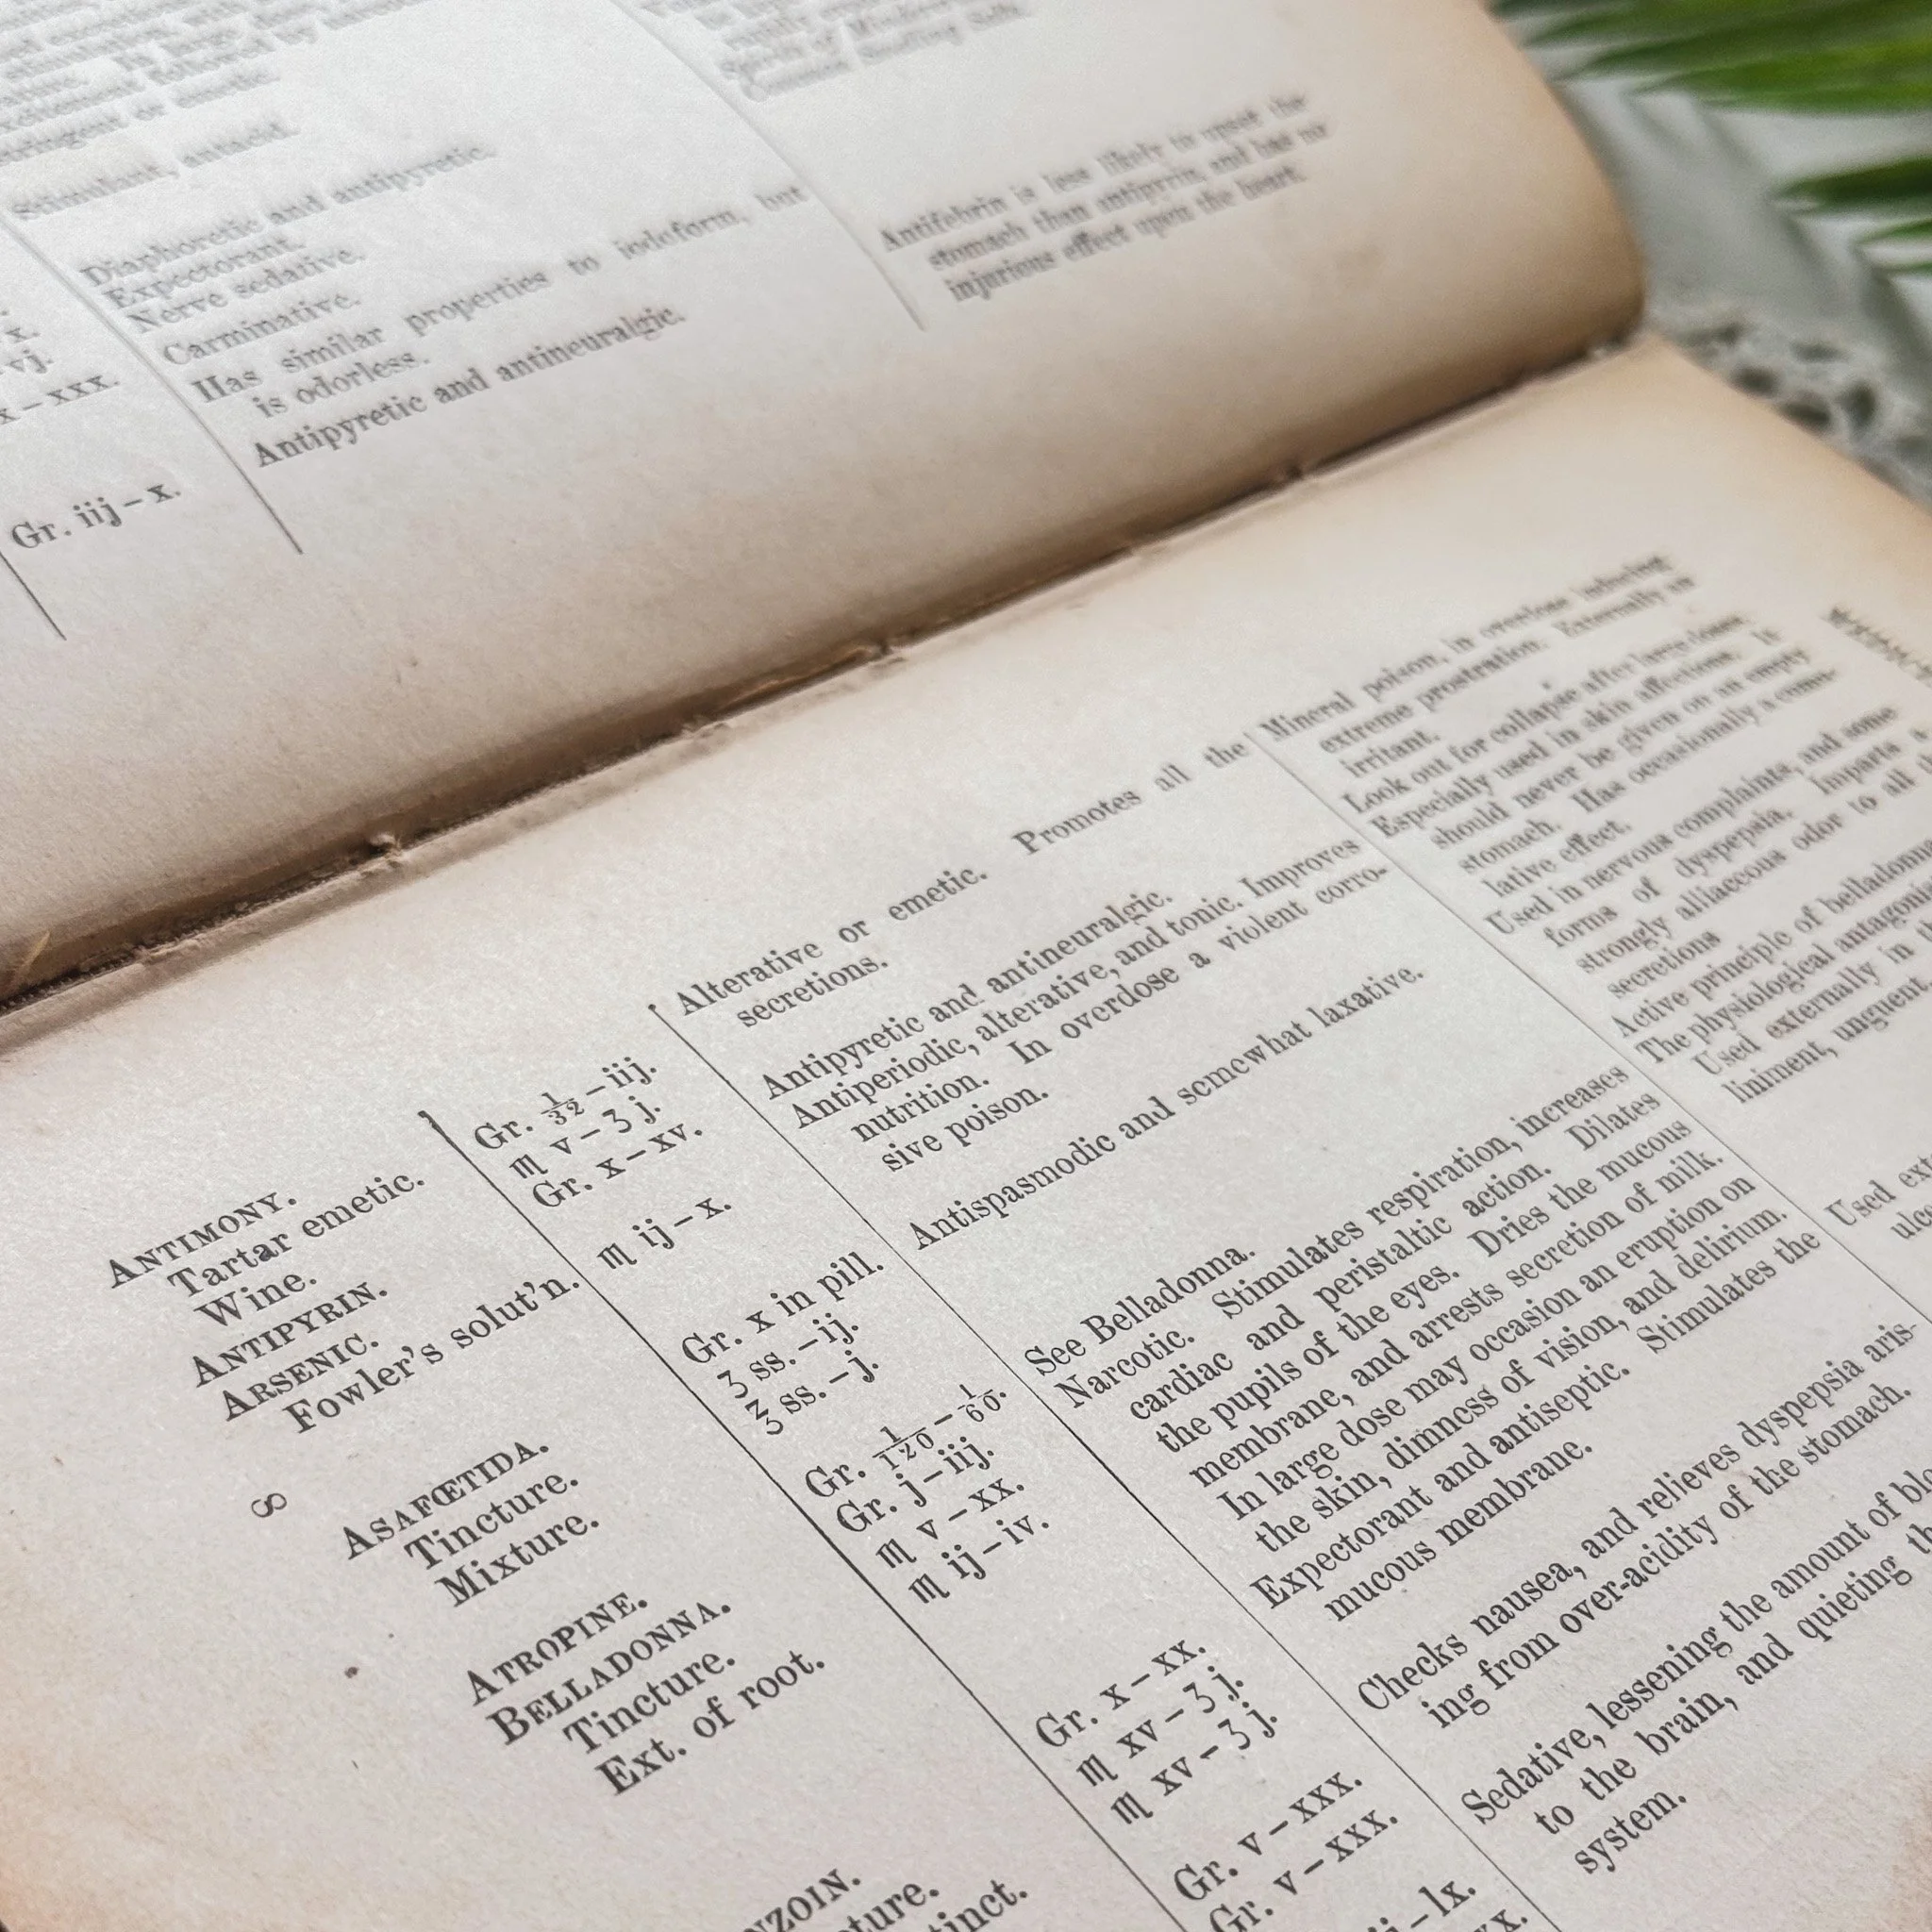 Stimulant, antacid.
Diaphoretic and antipyretic.
Expectorant.
Nerve sedative.
Carminative.
Has similar properties to iodoform, but
is odorless.
Antipyretic and antineuralgic.
x.
vj.
x–xxx.
Gr. iij–x.
Antifebrin is less likely to upset the
stomach than antipyrin, and has no
injurious effect upon the heart.
8
ANTIMONY.
Tartar emetic.
Wine.
ANTIPYRIN.
ARSENIC.
Fowler's solut'n.
ASAFŒTIDA.
Tincture.
Mixture.
ATROPINE.
BELLADONNA.
Tincture.
Ext. of root.
NZOIN.
ture.
tinct.
Gr. 1/32–iij.
♏ v–ʒ j.
Gr. x–xv.
♏ ij–x.
Gr. x in pill.
ʒ ss.–ij.
℥ ss.–j.
Gr. 1/120–1/60.
Gr. j–iij.
♏ v–xx.
♏ ij–iv.
Gr. x–xx.
♏ xv–ʒ j.
♏ xv–ʒ j.
Gr. v–xxx.
Gr. v–xxx.
–lx.
Alterative or emetic. Promotes all the
secretions.
Antipyretic and antineuralgic.
Antiperiodic, alterative, and tonic. Improves
nutrition. In overdose a violent corro-
sive poison.
Antispasmodic and somewhat laxative.
See Belladonna.
Narcotic. Stimulates respiration, increases
cardiac and peristaltic action. Dilates
the pupils of the eyes. Dries the mucous
membrane, and arrests secretion of milk.
In large dose may occasion an eruption on
the skin, dimness of vision, and delirium.
Expectorant and antiseptic. Stimulates the
mucous membrane.
Checks nausea, and relieves dyspepsia aris-
ing from over-acidity of the stomach.
Sedative, lessening the amount of blo
to the brain, and quieting th
system.
Mineral poison, in overdose inducing
extreme prostration. Externally an
irritant.
Look out for collapse after large doses.
Especially used in skin affections. It
should never be given on an empty
stomach. Has occasionally a cumu-
lative effect.
Used in nervous complaints, and some
forms of dyspepsia. Imparts a
strongly alliaceous odor to all th
secretions
Active principle of belladonna
The physiological antagonis
Used externally in th
liniment, unguent,
Used exte
ulce